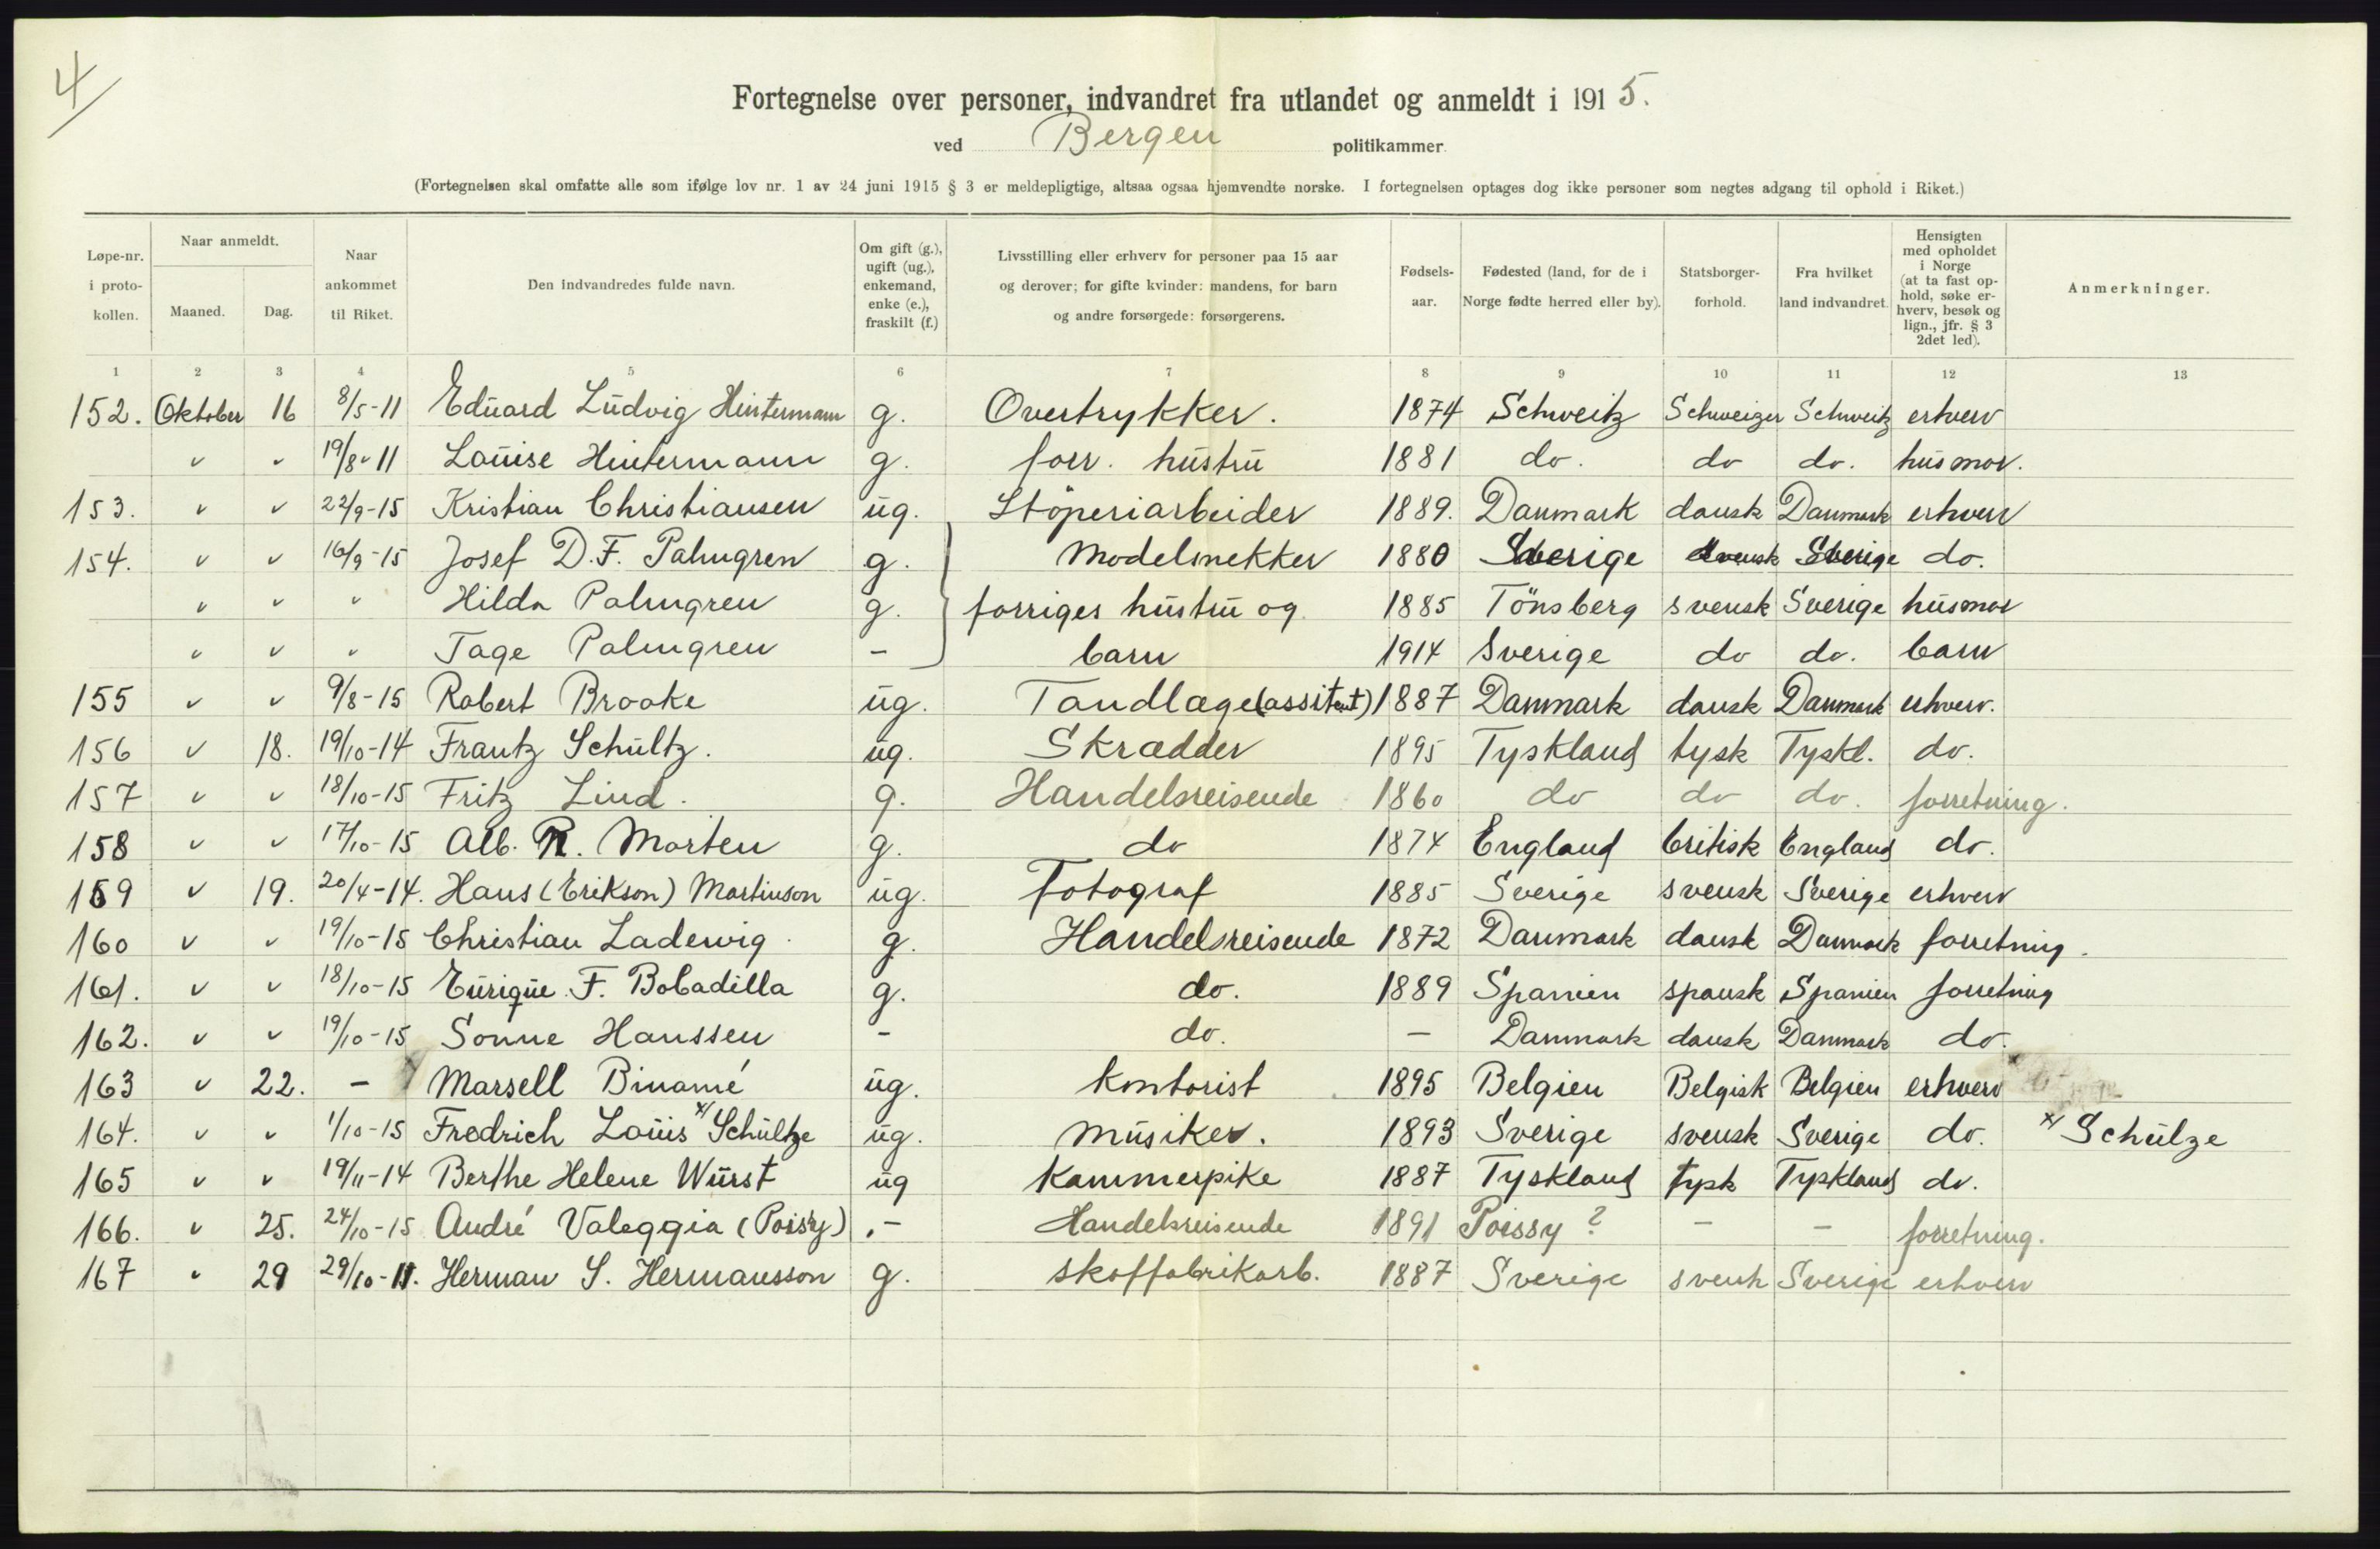 4/
Fortegnelse over personer, indvandret fra utlandet og anmeldt i 1915.
ved Bergen politikammer
(Fortegnelsen skal omfatte alle som ifølge lov nr. 1 av 24 juni 1915 § 3 er meldepligtige, altsaa ogsaa hjemvendte norske. I fortegnelsen optages dog ikke personer som negtes adgang til ophold i Riket.)
Løpe-nr. i proto- kollen. Naar anmeldt. Maaned. Dag. Naar ankommet til Riket. Den indvandredes fulde navn. Om gift (g.), ugift (ug.), enkemand, enke (e.), fraskilt (f.) Livsstilling eller erhverv for personer paa 15 aar og derover; for gifte kvinder: mandens, for barn og andre forsørgede: forsørgerens. Fødsels- aar. Fødested (land, for de i Norge fødte herred eller by). Statsborger- forhold. Fra hvilket land indvandret. Hensigten med opholdet i Norge (at ta fast op- hold, søke er- hverv, besøk og lign., jfr. § 3 2det led). Anmerkninger.
1 2 3 4 5 6 7 8 9 10 11 12 13
152. Oktober 16 8/5-11 Eduard Ludvig Hintermann g. Overtrykker. 1874 Schweitz Schweizer Schweitz erhverv
〃 〃 19/8-11 Louise Hintermann g. forr. hustru 1881 do. do do. husmor.
153. 〃 〃 22/9-15 Kristian Christiansen ug. Støperiarbeider 1889. Danmark dansk Danmark erhverv
154. 〃 〃 16/9-15 Josef D.F. Palmgren g. Modelsnekker 1880 Sverige svensk Sverige do.
〃 〃 〃 Hilda Palmgren g. forriges hustru og 1885 Tönsberg svensk Sverige husmor
〃 〃 〃 Tage Palmgren - barn 1914 Sverige do do. barn
155 〃 〃 9/8-15 Robert Brooke ug. Tandlæge(assitent) 1887 Danmark dansk Danmark erhverv.
156 〃 18. 19/10-14 Frantz Schultz. ug. Skrædder 1895 Tyskland tysk Tyskl. do.
157 〃 〃 18/10-15 Fritz Lind. g. Handelsreisende 1860 do do do. forretning.
158 〃 〃 17/10-15 Alb. R. Morten g. do 1874 England britisk England do.
159 〃 19. 20/4-14. Hans (Erikson) Martinson ug. Fotograf 1885 Sverige svensk Sverige erhverv
160 〃 〃 19/10-15 Christian Ladewig. g. Handelsreisende 1872 Danmark dansk Danmark forretning.
161. 〃 〃 18/10-15 Enrique F. Bobadilla g. do. 1889 Spanien spansk Spanien forretning
162. 〃 〃 19/10-15 Sonne Hanssen - do. - Danmark dansk Danmark do.
163 〃 22. - Marsell Binamé ug. Kontorist 1895 Belgien Belgisk Belgien erhverv
164. 〃 〃 1/10-15 Fredrich Louis x/ Schultze ug. Musiker. 1893 Sverige svensk Sverige do. x/ Schulze
165 〃 〃 19/11-14 Berthe Helene Wurst ug Kammerpike 1887 Tyskland tysk Tyskland do.
166. 〃 25. 24/10-15 André Valeggia (Poissy) .- Handelsreisende 1891 Poissy ? - - forretning.
167 〃 29 29/10-11. Herman S. Hermansson g. skoffabrikarb. 1887 Sverige svensk Sverige erhverv